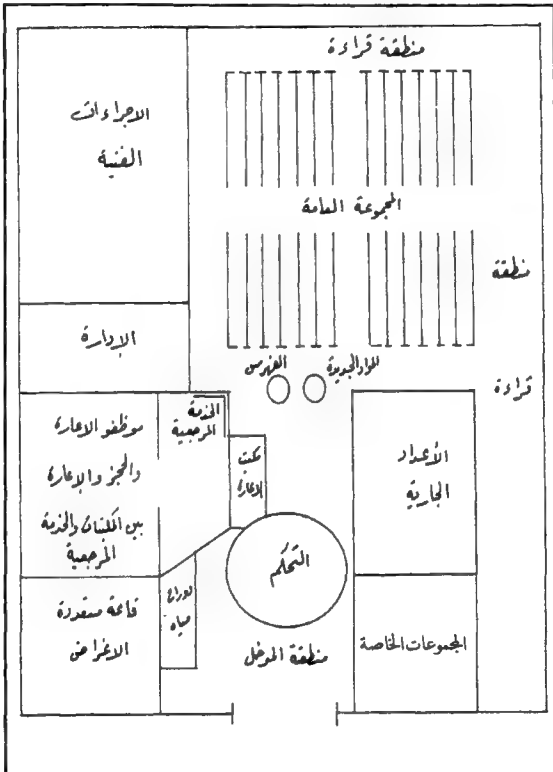 منطقة قراءة
الاجراءات
الفنية
المجموعة العامة
منطقة
قراءة
الإدارة
الفهرس
المواد الجديدة
الخدمة
المرجعية
موظفو الاعارة
والحجز والإعارة
بين المكتبات والخدمة
المرجعية
مكتب
الاعارة
الأعداد
الجارية
التحكم
قاعة متعددة
الاغراض
دورات
مياه
منطقة المدخل
المجموعات الخاصة